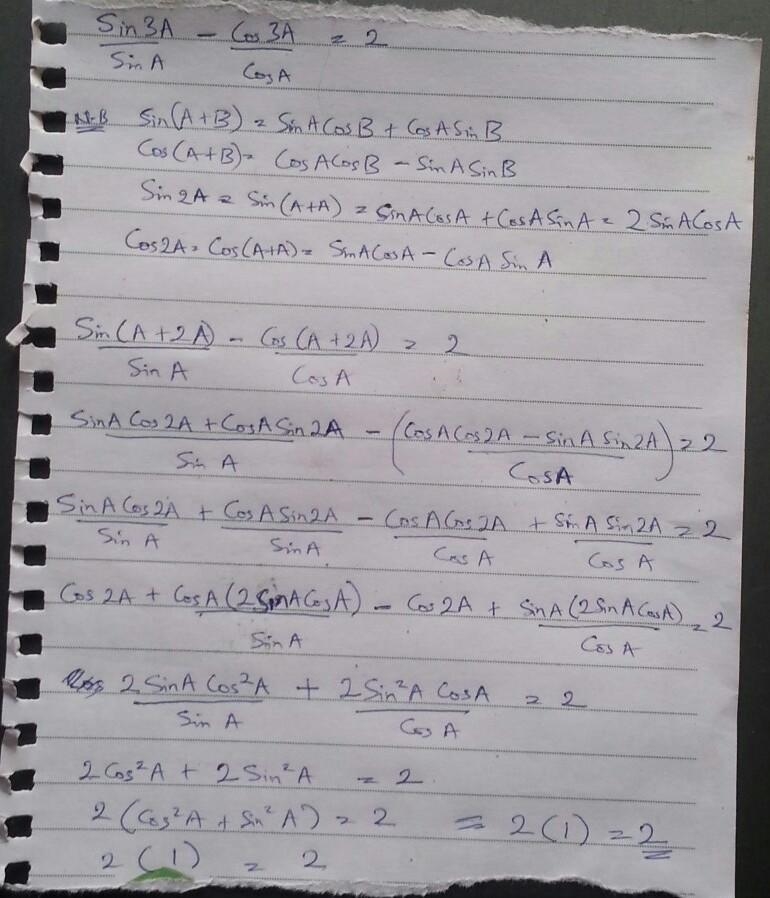 Sin3A/SinA − Cos3A/CosA = 2
N.B Sin(A+B) = SinACosB + CosASinB
Cos(A+B) = CosACosB − SinASinB
Sin2A = Sin(A+A) = SinACosA + CosASinA = 2SinACosA
Cos2A = Cos(A+A) = SinACosA − CosA Sin A
Sin(A+2A)/Sin A − Cos(A+2A)/CosA = 2
(SinA Cos2A + CosASin2A)/Sin A − ((CosACos2A − SinA Sin2A)/CosA) = 2
SinA Cos2A/Sin A + CosASin2A/SinA − CosACos2A/Cos A + SinA Sin2A/Cos A = 2
Cos2A + CosA(2SinACosA)/SinA − Cos2A + SinA(2SinACosA)/Cos A = 2
2SinA Cos²A/Sin A + 2Sin²A CosA/Cos A = 2
2Cos²A + 2Sin²A = 2
2(Cos²A + Sin²A) = 2 = 2(1) = 2
2(1) = 2